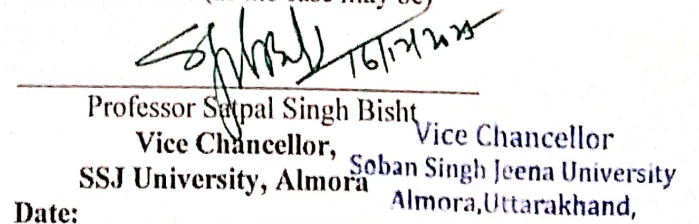 (as the case may be)
Professor Satpal Singh Bisht
Vice Chancellor,
SSJ University, Almora
Vice Chancellor
Soban Singh Jeena University
Almora,Uttarakhand,
Date: